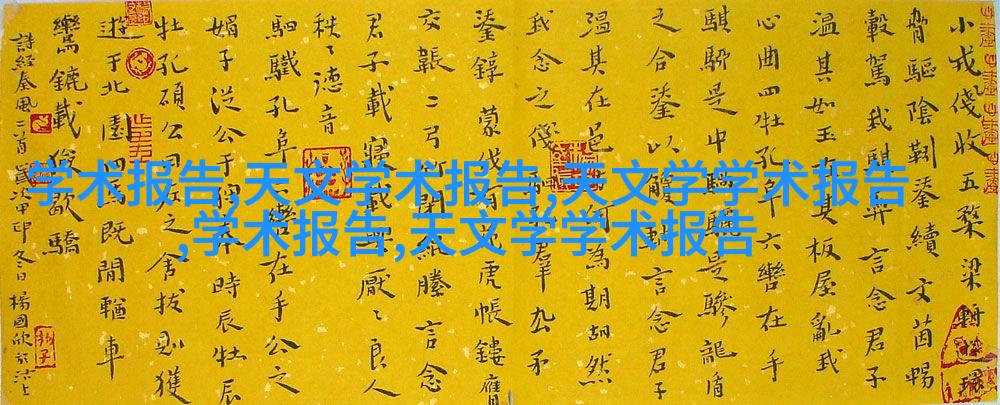 小戎俴收五楘梁輈環
脅驅陰靷鋈續文茵暢
轂駕我騏馵言念君子
温其如玉在其板屋亂我
心曲四牡孔阜六轡在手
騏駵是中騧驪是驂龍盾
之合鋈以觼軜言念君子
温其在邑何為期胡然
我念之俴孔羣厹矛
鋈錞蒙伐有苑虎帳鏤膺
交韔二弓竹閉緄縢言念
君子載寢載興厭〻良人
秩〻德音
駟驖孔阜六轡在手公之
媚子從公于狩奉時辰牡辰
牡孔碩公曰左之舍拔則獲
遊于北園四馬既閒輶車
鸞鑣載獫歇驕
詩經秦風二首歲次甲冬日楊國欣於沽上
学术报告,天文学术报告,天文学学术报告
,学术报告,天文学学术报告